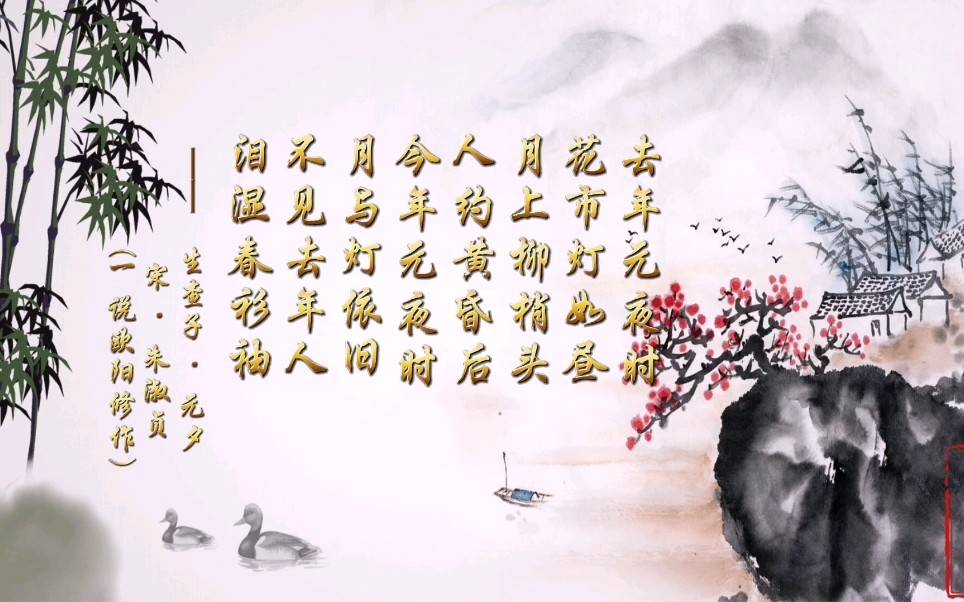 去年元夜时
花市灯如昼
月上柳梢头
人约黄昏后
今年元夜时
月与灯依旧
不见去年人
泪湿春衫袖
——生查子·元夕
宋·朱淑贞
(一说欧阳修作)